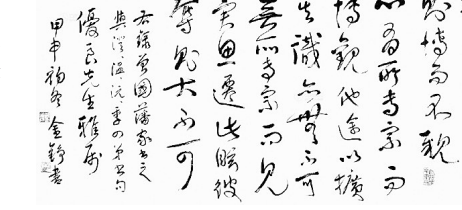 則博而不親
心有所專宗而
博觀他途以擴
其識亦無不可
無所專宗而見
異思遷此眩彼
奪則大不可
右錄曾國藩家書之
與澄溫沅季四弟書句
優良先生雅屬
甲申初冬 金錚書